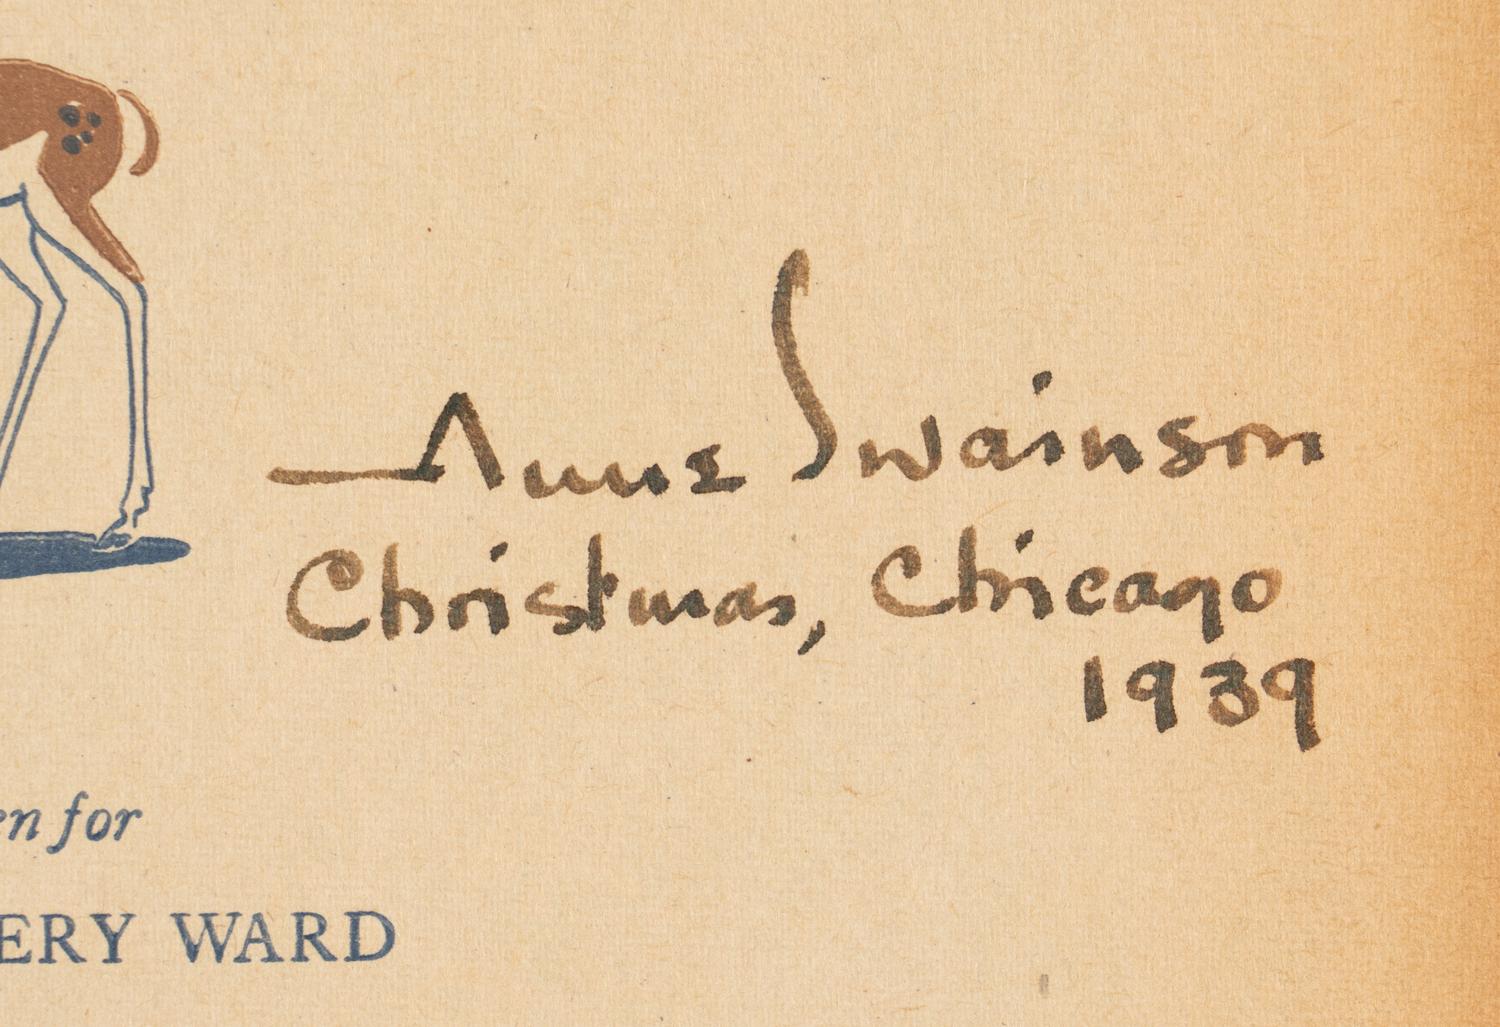 Anne Swainson
Christmas, Chicago
1939
en for
ERY WARD